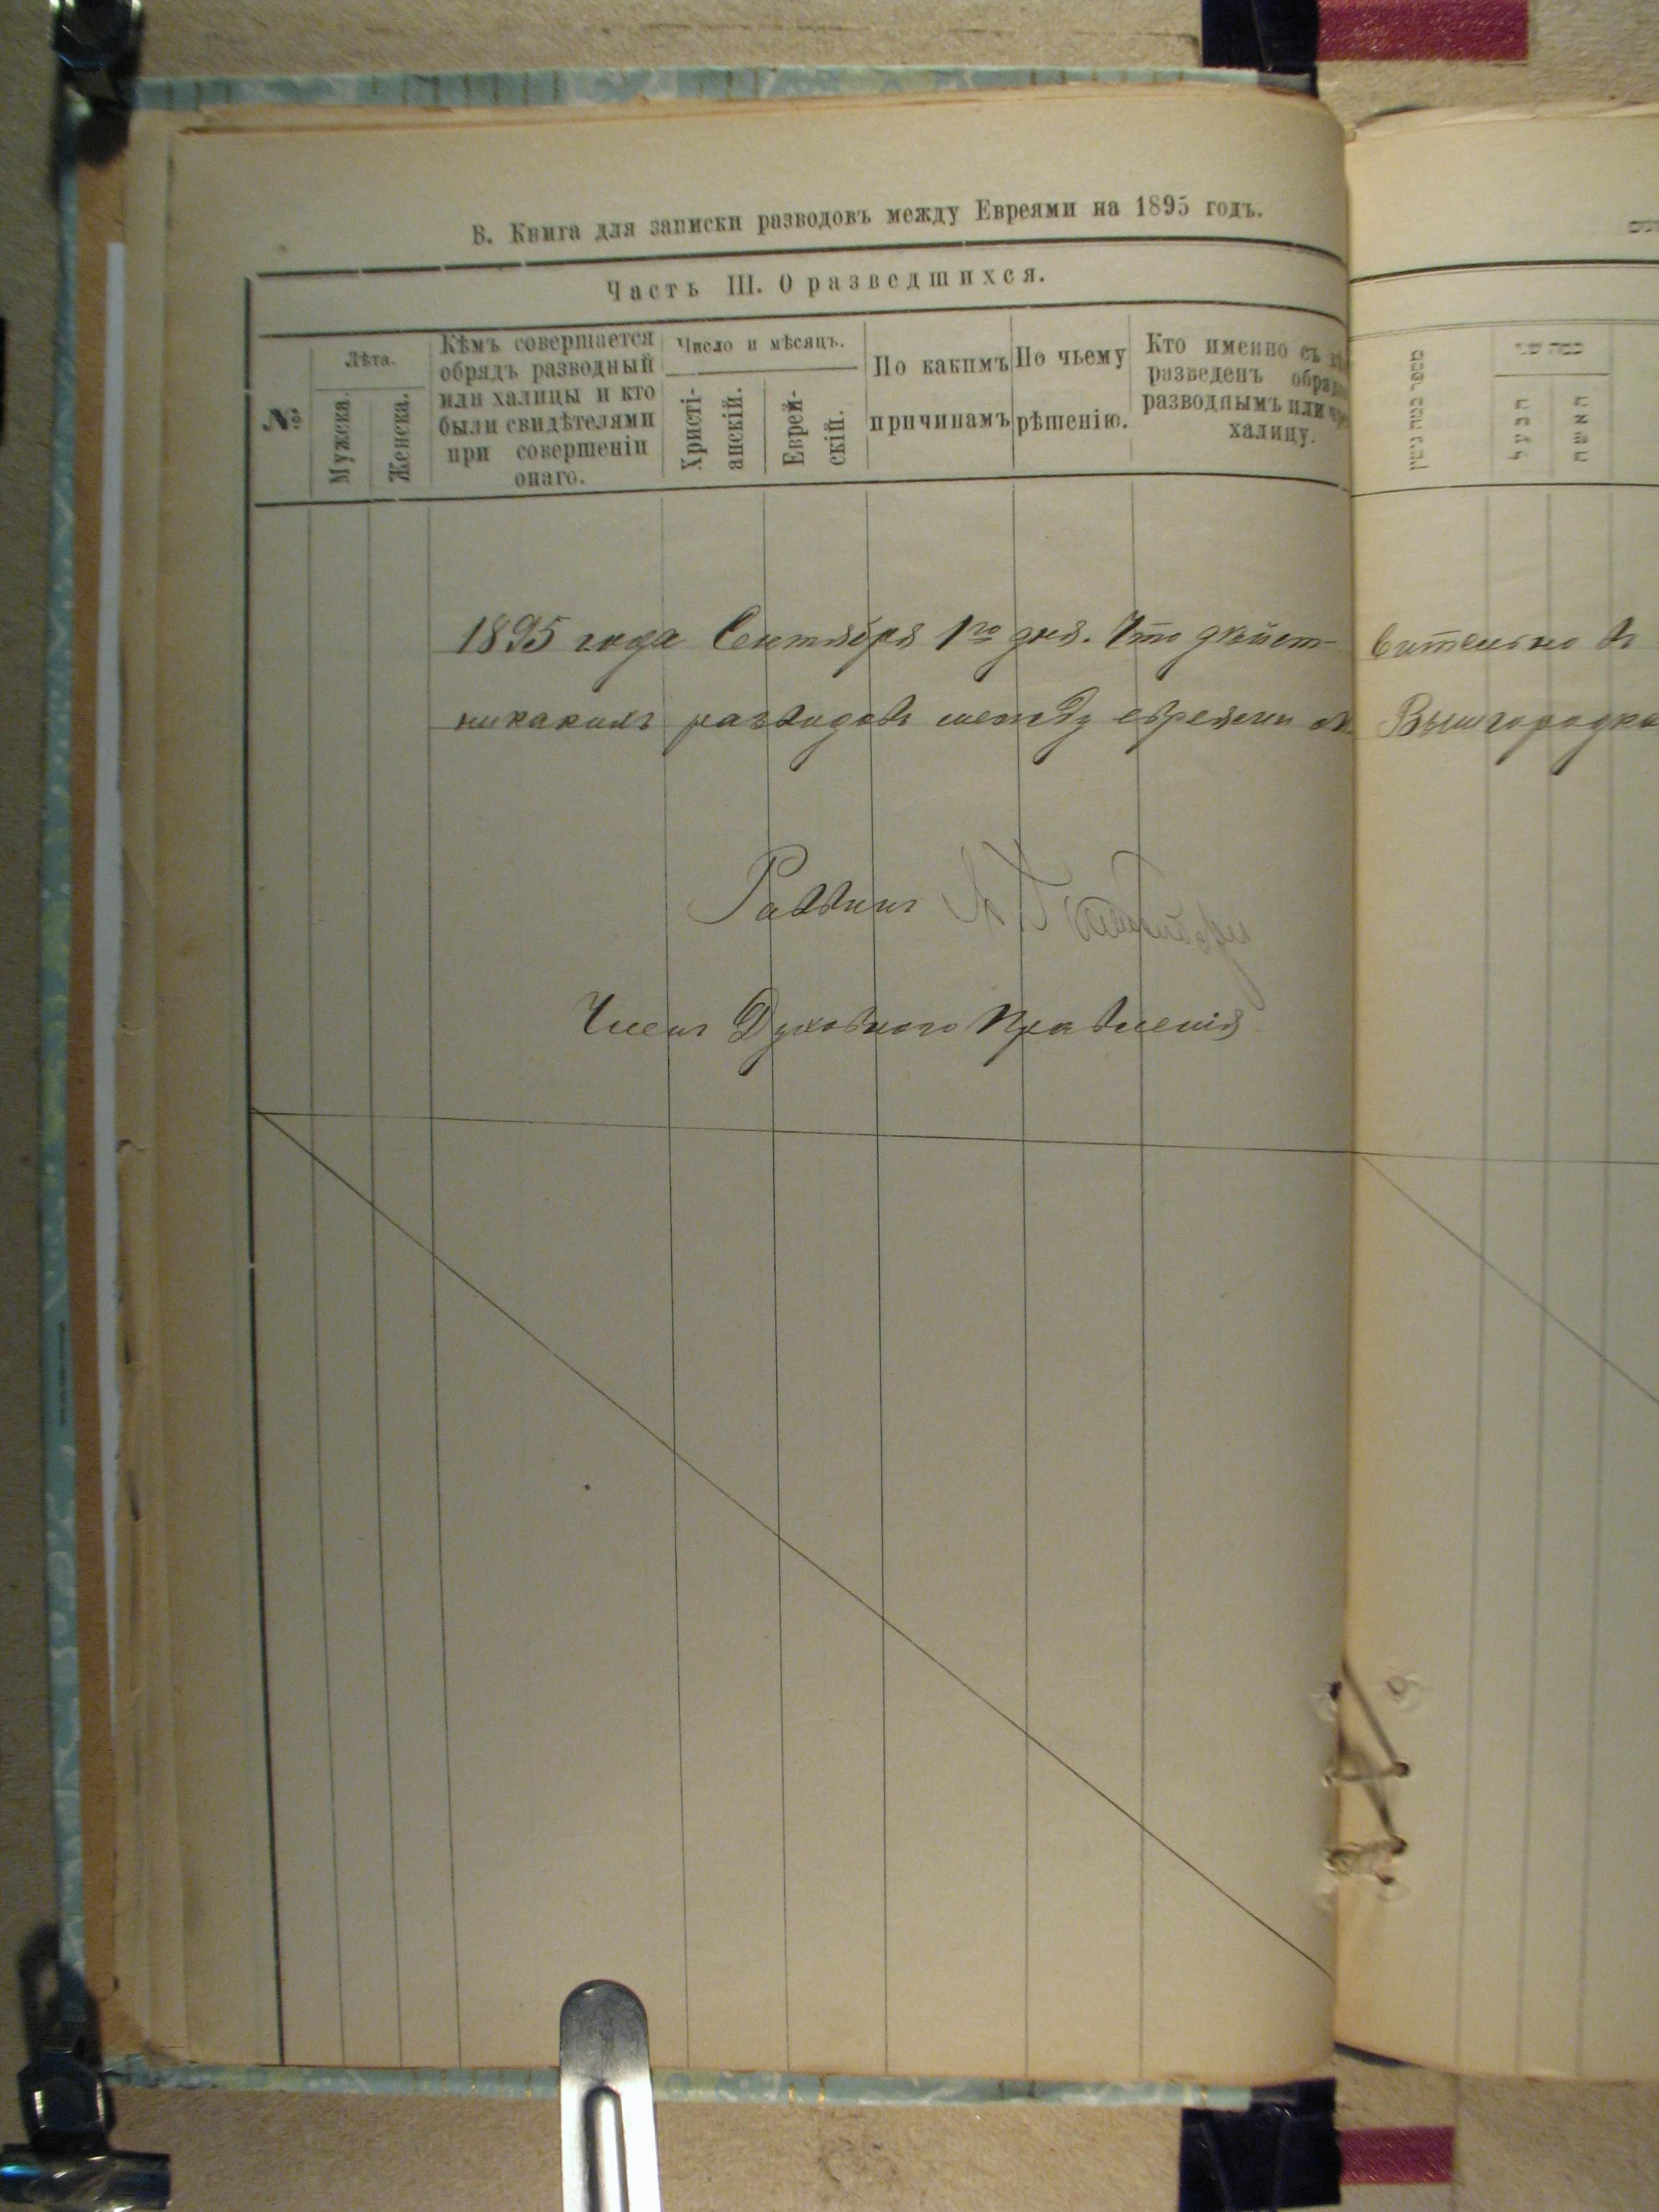 В. Книга для записки разводовъ между Евреями на 1895 годъ.
Часть III. О разведшихся.
№
Лѣта.
Мужска.
Женска.
Кѣмъ совершается
обрядъ разводный
или халицы и кто
были свидѣтелями
при совершеніи
онаго.
Число и мѣсяцъ.
Христі-
анскій.
Еврей-
скій.
По какимъ
причинамъ
По чьему
рѣшенію.
Кто именно съ
разведенъ
разводнымъ или
халицу.
1895 года Сентября 1го дня. Что дѣйст-
никакихъ разводовъ между евреями м.
Раввинъ
Членъ Духовнаго Правленія
הבעל
האשה
вительно въ
Вышгородка